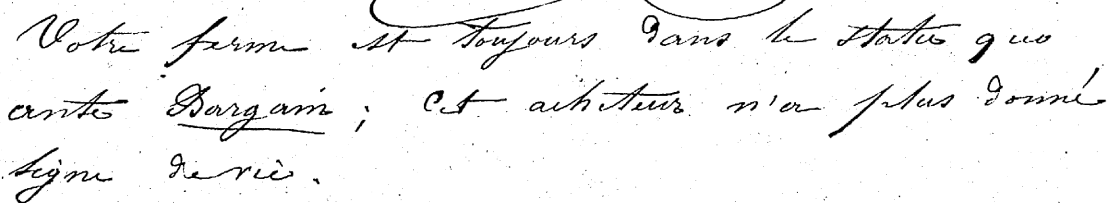 Votre ferme est toujours dans le statu quo
ante Bargain ; Cet acheteur n'a plus donné
signe de vie.